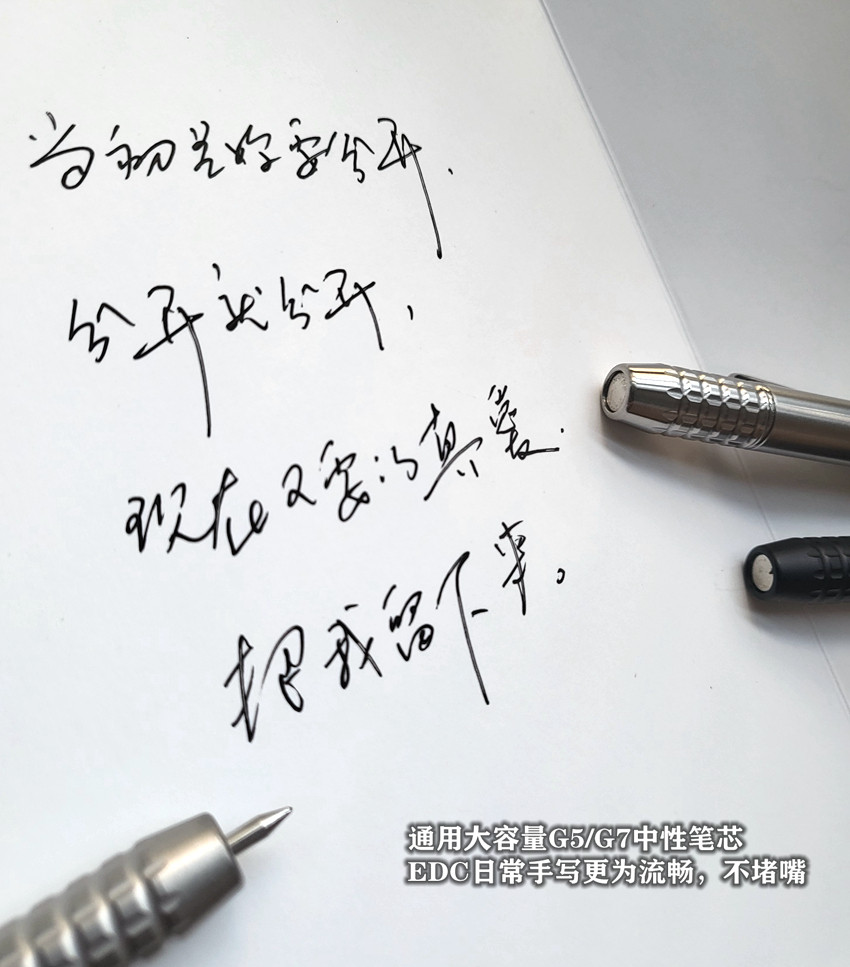 当初是你要分开.
分开就分开,
现在又要用真爱.
把我留下来。
通用大容量G5/G7中性笔芯
EDC日常手写更为流畅，不堵嘴